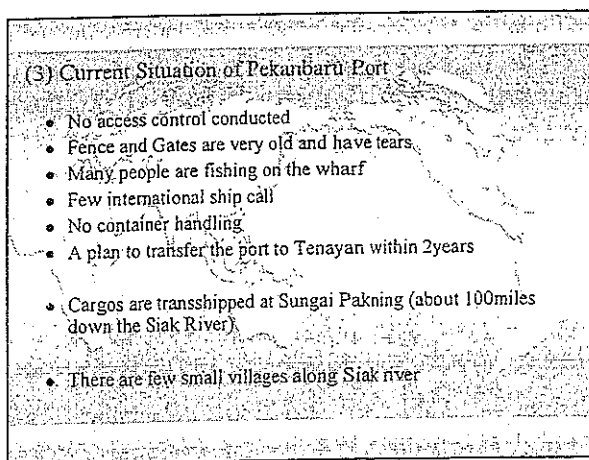 (3) Current Situation of Pekanbaru Port
• No access control conducted
• Fence and Gates are very old and have tears
• Many people are fishing on the wharf
• Few international ship call
• No container handling
• A plan to transfer the port to Tenayan within 2years
• Cargos are transshipped at Sungai Pakning (about 100miles
down the Siak River)
• There are few small villages along Siak river